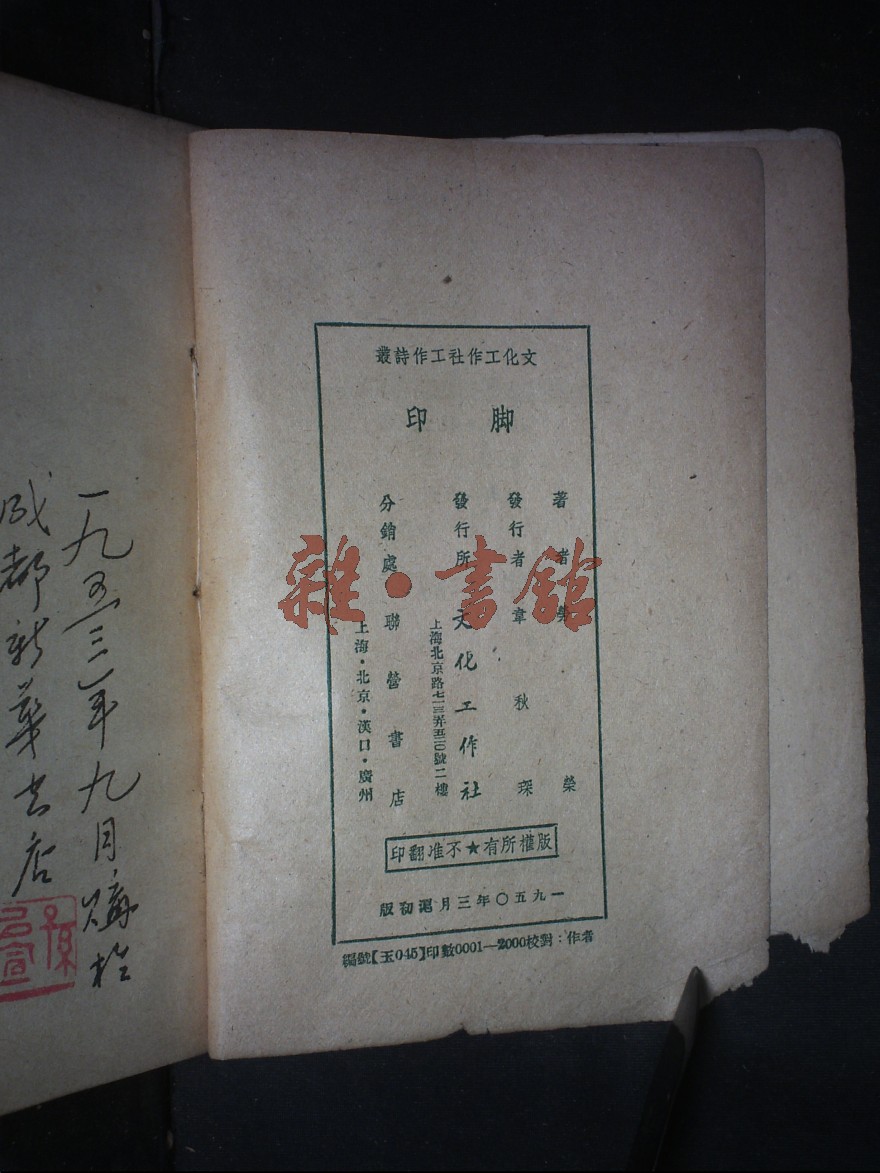 文化工作社工作詩叢
脚印
著者 榮
發行者 韋秋琛
發行所 文化工作社
上海北京路號二樓
分銷處 聯營書店
上海·北京·漢口·廣州
版權所有★不准翻印
一九五〇年三月滬初版
編號【玉045】印數0001—2000校對：作者
一九五三年九月購於
成都新華书店
雜·書館